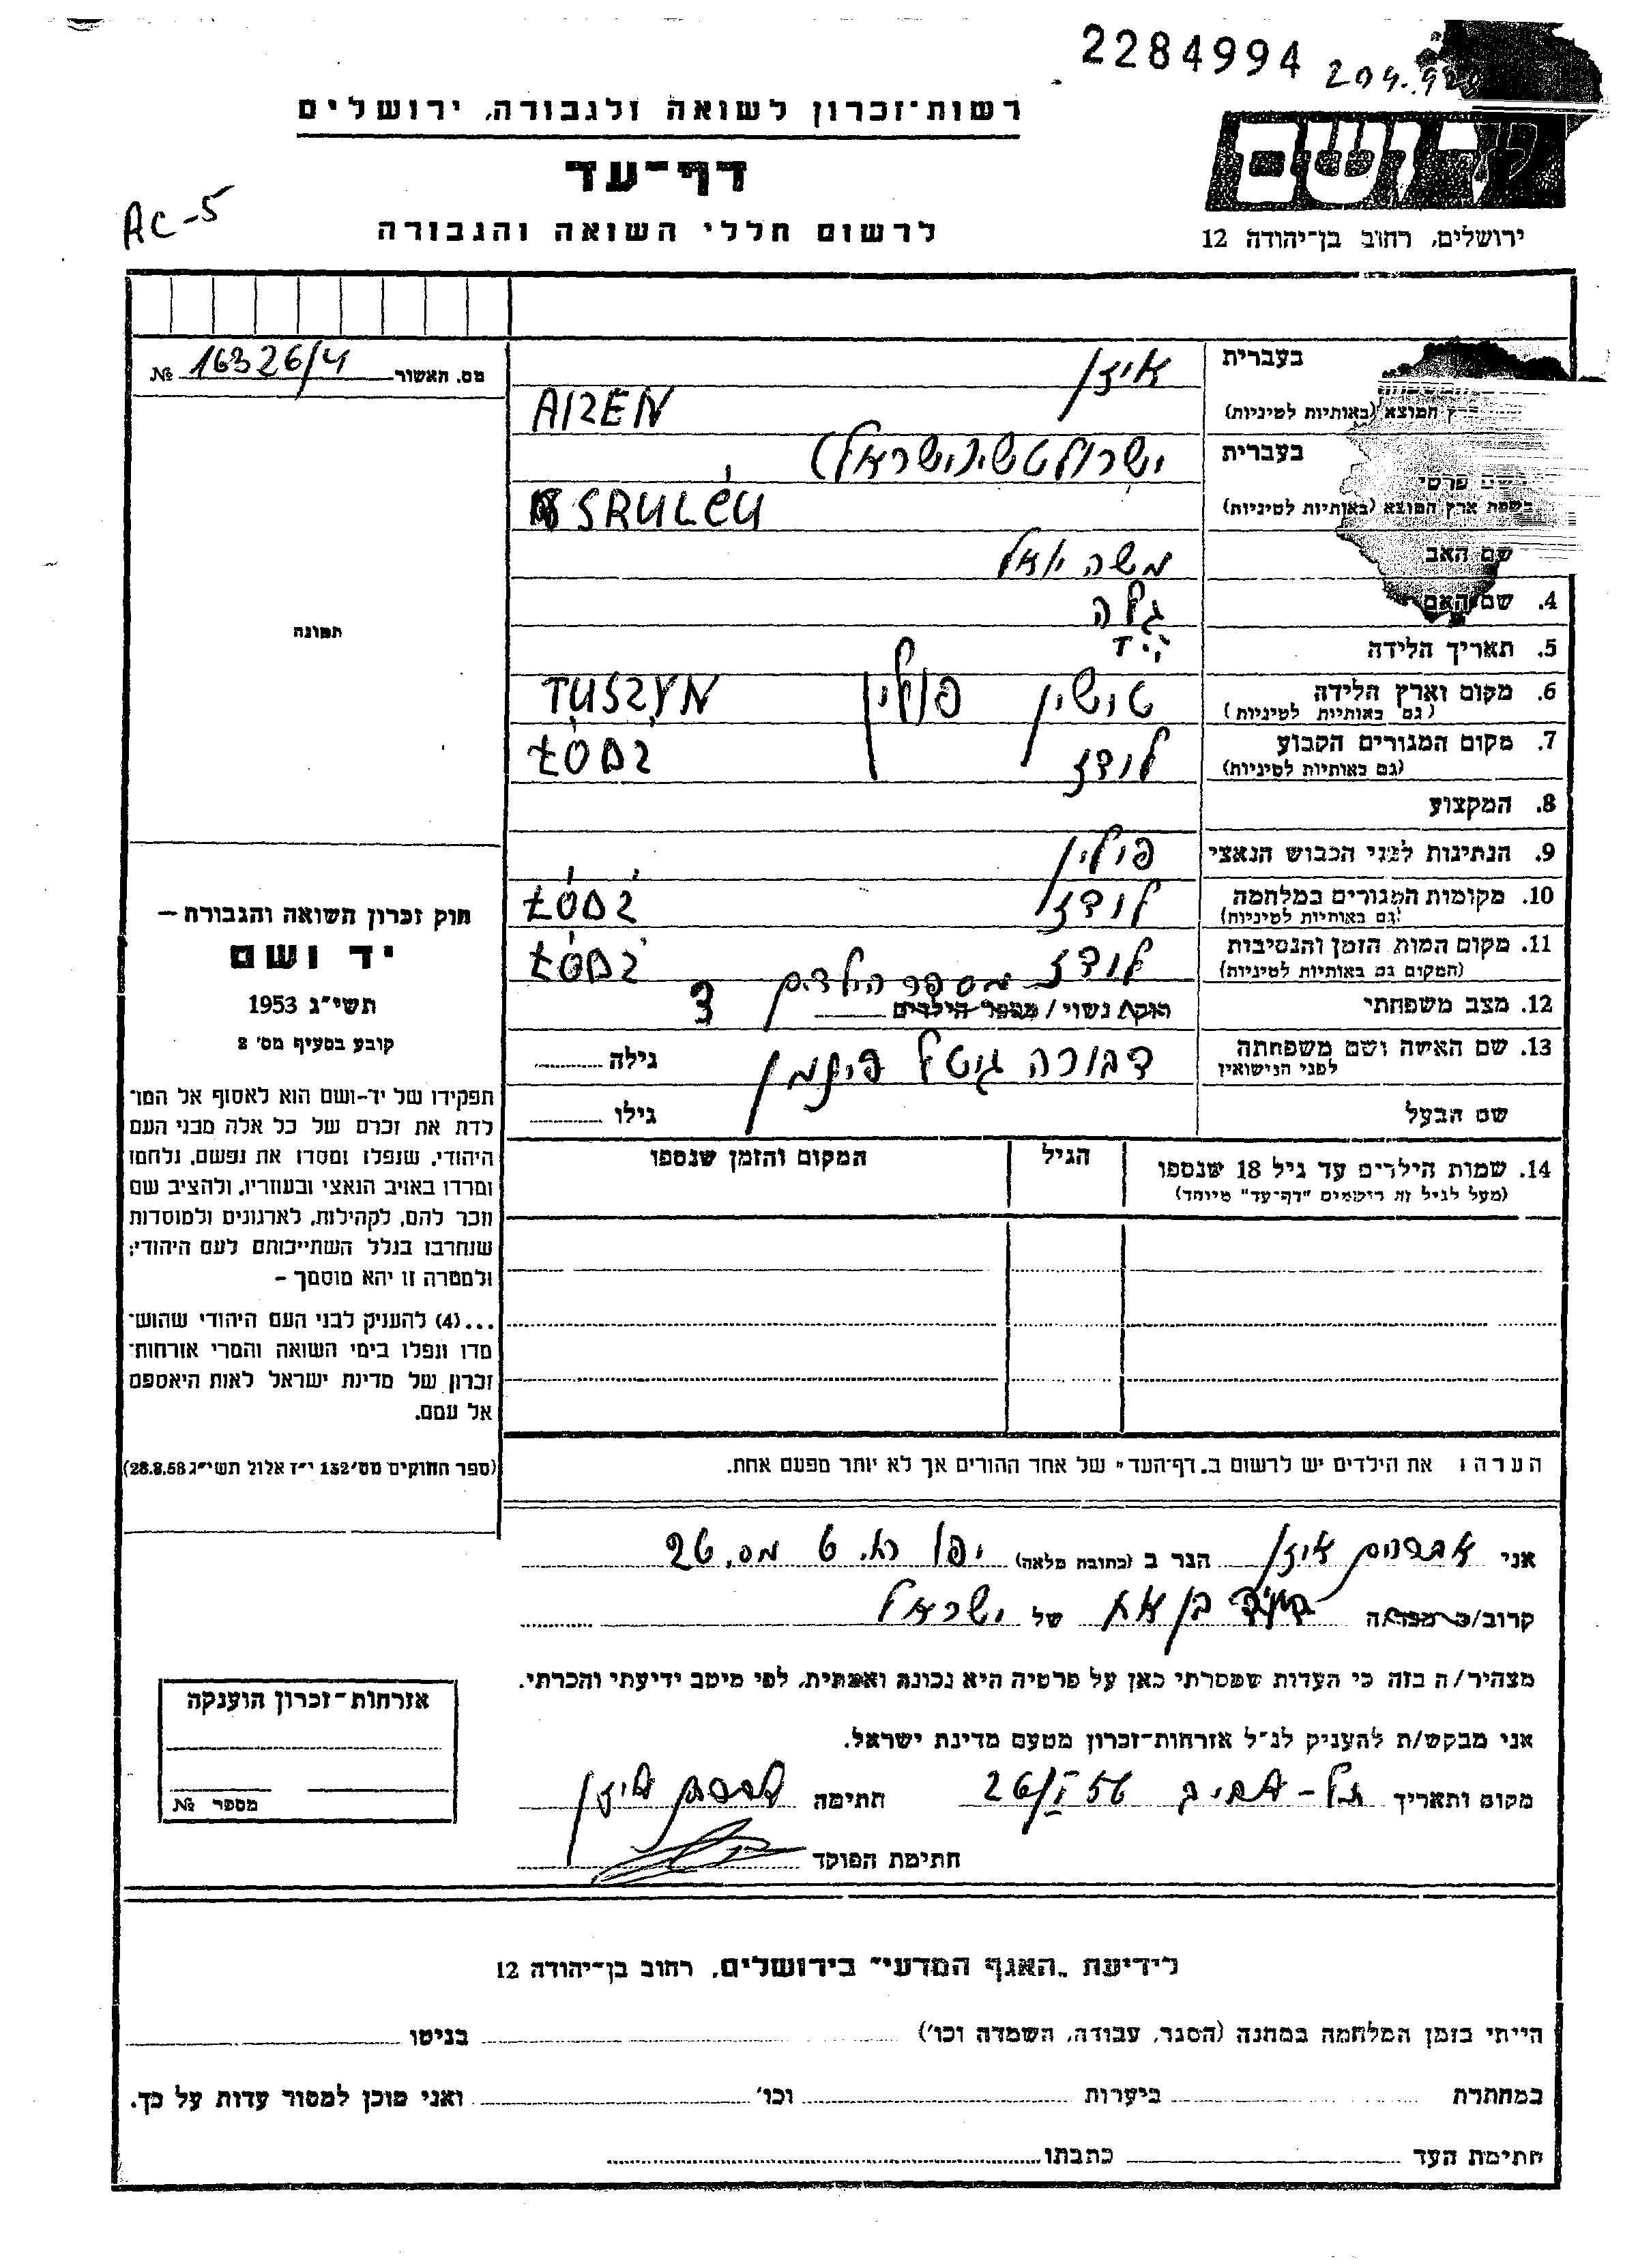 2284994
204.
רשות־זכרון לשואה ולגבורה, ירושלים
דף־עד
לרשום חללי השואה והגבורה
AC-5
ירושלים, רחוב בן־יהודה 12
מס. האשור № 16326/4
בעברית איזן
המוצא (באותיות לטיניות) AIZEN
בעברית
שם פרטי
בשפת ארץ המוצא (באותיות לטיניות)
שם האב משה יואל
4. שם האם גלה
5. תאריך הלידה
6. מקום וארץ הלידה טושין פולין TUSZYN
(גם באותיות לטיניות)
7. מקום המגורים הקבוע לודז ŁÓDŹ
(גם באותיות לטיניות)
8. המקצוע
9. הנתינות לפני הכבוש הנאצי פולין
10. מקומות המגורים במלחמה לודז ŁÓDŹ
(גם באותיות לטיניות)
11. מקום המות הזמן והנסיבות לודז ŁÓDŹ
(המקום גם באותיות לטיניות)
12. מצב משפחתי רוק/ נשוי / מספר הילדים מספר הילדים 3
13. שם האשה ושם משפחתה דבורה גיטל גילה
לפני הנישואין
שם הבעל גילו
14. שמות הילדים עד גיל 18 שנספו הגיל המקום והזמן שנספו
(מעל לגיל זה רושמים "דף־עד" מיוחד)
הערה: את הילדים יש לרשום ב„דף־העד" של אחד ההורים אך לא יותר מפעם אחת.
תמונה
חוק זכרון השואה והגבורה —
יד ושם
תשי"ג 1953
קובע בסעיף מס' 2
תפקידו של יד־ושם הוא לאסוף אל המו־
לדת את זכרם של כל אלה מבני העם
היהודי, שנפלו ומסרו את נפשם, נלחמו
ומרדו באויב הנאצי ובעוזריו, ולהציב שם
וזכר להם, לקהילות, לארגונים ולמוסדות
שנחרבו בגלל השתייכותם לעם היהודי;
ולמטרה זו יהא מוסמך –
...(4) להעניק לבני העם היהודי שהוש־
מדו ונפלו בימי השואה והמרי אזרחות־
זכרון של מדינת ישראל לאות היאספם
אל עמם.
(ספר החוקים מס' 132 י"ז אלול תשי"ג 28.8.53)
אני אברהם איזן הגר ב (כתובת מלאה) יפו
קרוב/ה בן אח של ישראל
מצהיר/ה בזה כי העדות שמסרתי כאן על פרטיה היא נכונה ואמתית, לפי מיטב ידיעתי והכרתי.
אני מבקש/ת להעניק לנ"ל אזרחות־זכרון מטעם מדינת ישראל.
מקום ותאריך תל-אביב 26/I 56 חתימה אברהם איזן
חתימת הפוקד
אזרחות־זכרון הוענקה
מספר №
לידיעת „האגף המדעי" בירושלים, רחוב בן־יהודה 12
הייתי בזמן המלחמה במחנה (הסגר, עבודה, השמדה וכו') בגיטו
במחתרת ביערות וכו' ואני מוכן למסור עדות על כך.
חתימת העד כתבתו